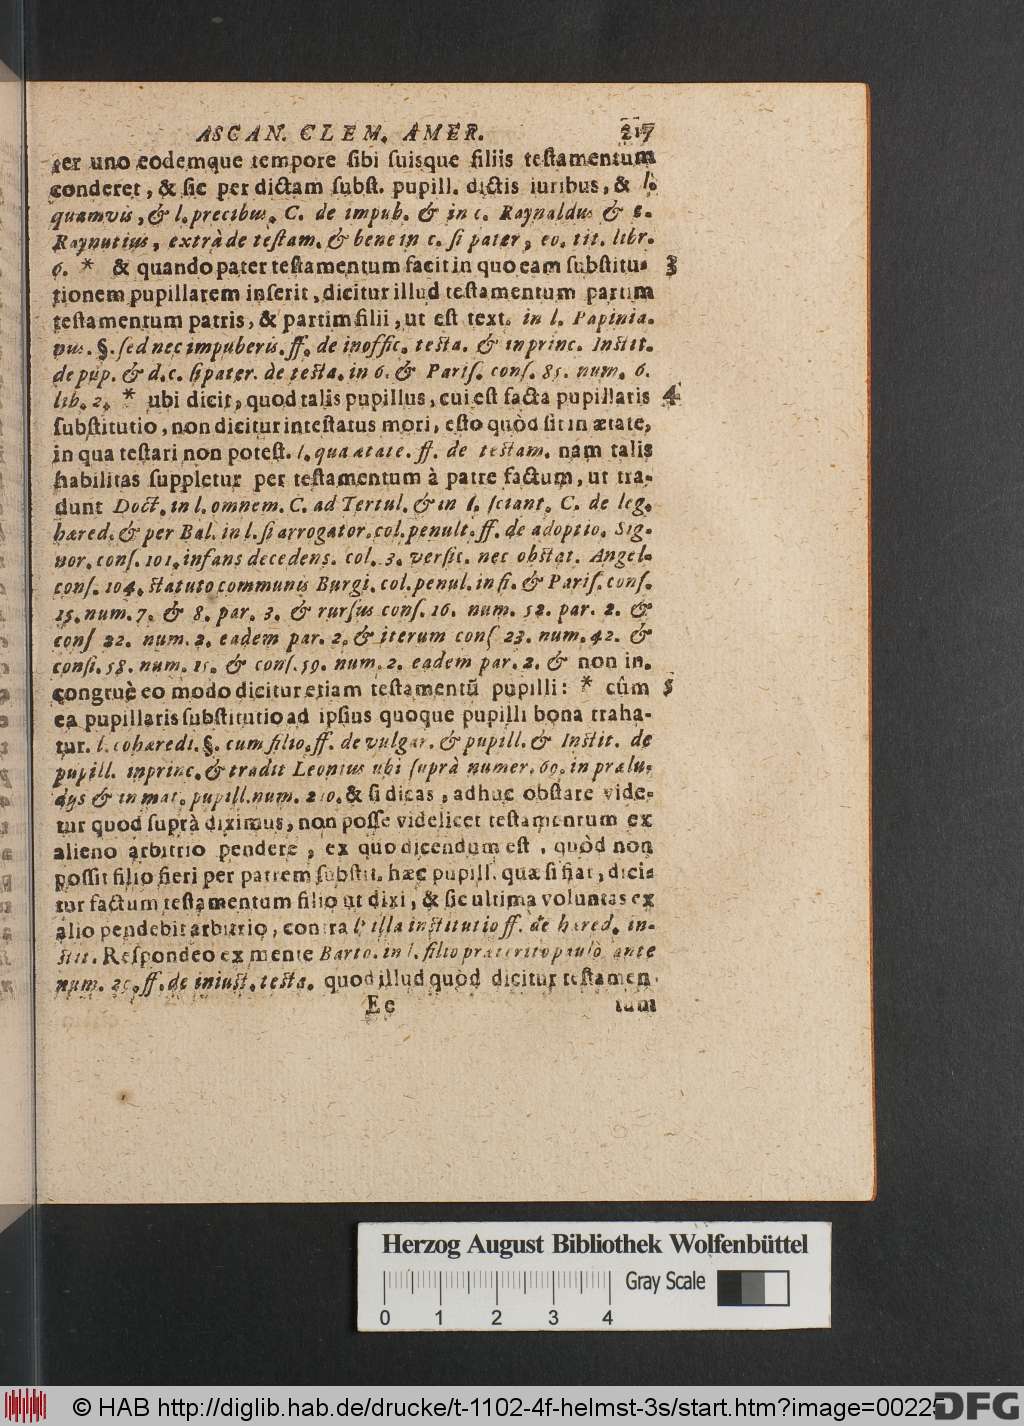 ASCAN. CLEM. AMER. 217
ter uno eodemque tempore sibi suisque filiis testamentum
conderet, & sic per dictam subst. pupill. dictis iuribus, & l.
quamvis, & l. precibus. C. de impub. & in c. Raynaldus & c.
Raynutius, extrà de testam. & bene in c. si pater, eo. tit. libr.
6. * & quando pater testamentum facit in quo eam substitu- 3
tionem pupillarem inserit, dicitur illud testamentum partim
testamentum patris, & partim filii, ut est text. in l. Papinia-
nus. §. sed nec impuberis. ff. de inoffic. testa. & in princ. Instit.
de pup. & d. c. si pater. de testa. in 6. & Paris. cons. 85. num. 6.
lib. 2. * ubi dicit, quod talis pupillus, cui est facta pupillaris 4
substitutio, non dicitur intestatus mori, esto quòd sit in ætate,
in qua testari non potest. l. qua ætate. ff. de testam. nam talis
habilitas suppletur per testamentum à patre factum, ut tra-
dunt Doct. in l. omnem. C. ad Tertul. & in l. sciant. C. de leg.
hæred. & per Bal. in l. si arrogator. col. penult. ff. de adoptio. Sig-
nor. cons. 101. infans decedens. col. 3. versic. nec obstat. Angel.
cons. 104. statuto communis Burgi. col. penul. in fi. & Paris. cons.
15. num. 7. & 8. par. 3. & rursus cons. 16. num. 52. par. 2. &
cons 22. num. 2. eadem par. 2. & iterum cons 23. num. 42. &
consi. 58. num. 15. & cons. 59. num. 2. eadem par. 2. & non in-
congruè eo modo dicitur etiam testamentū pupilli: * cûm 5
ea pupillaris substitutio ad ipsius quoque pupilli bona traha-
tur. l. cohæredi. §. cum filio. ff. de vulgar. & pupill. & Instit. de
pupill. in princ. & tradit Leonius ubi suprà numer. 69. in prælu-
diis & in mat. pupill. num. 210. & si dicas, adhuc obstare vide-
tur quod suprà diximus, non posse videlicet testamentum ex
alieno arbitrio pendere, ex quo dicendum est, quòd non
possit filio fieri per patrem substit. hæc pupill. quæ si fiat, dici-
tur factum testamentum filio ut dixi, & sic ultima voluntas ex
alio pendebit arbitrio, contra l. illa institutio ff. de hæred. in-
stit. Respondeo ex mente Barto. in l. filio præterito paulò ante
num. 20. ff. de iniust. testa. quod illud quòd dicitur testamen-
Ee tum
Herzog August Bibliothek Wolfenbüttel
Gray Scale
0 1 2 3 4
© HAB http://diglib.hab.de/drucke/t-1102-4f-helmst-3s/start.htm?image=00225
DFG